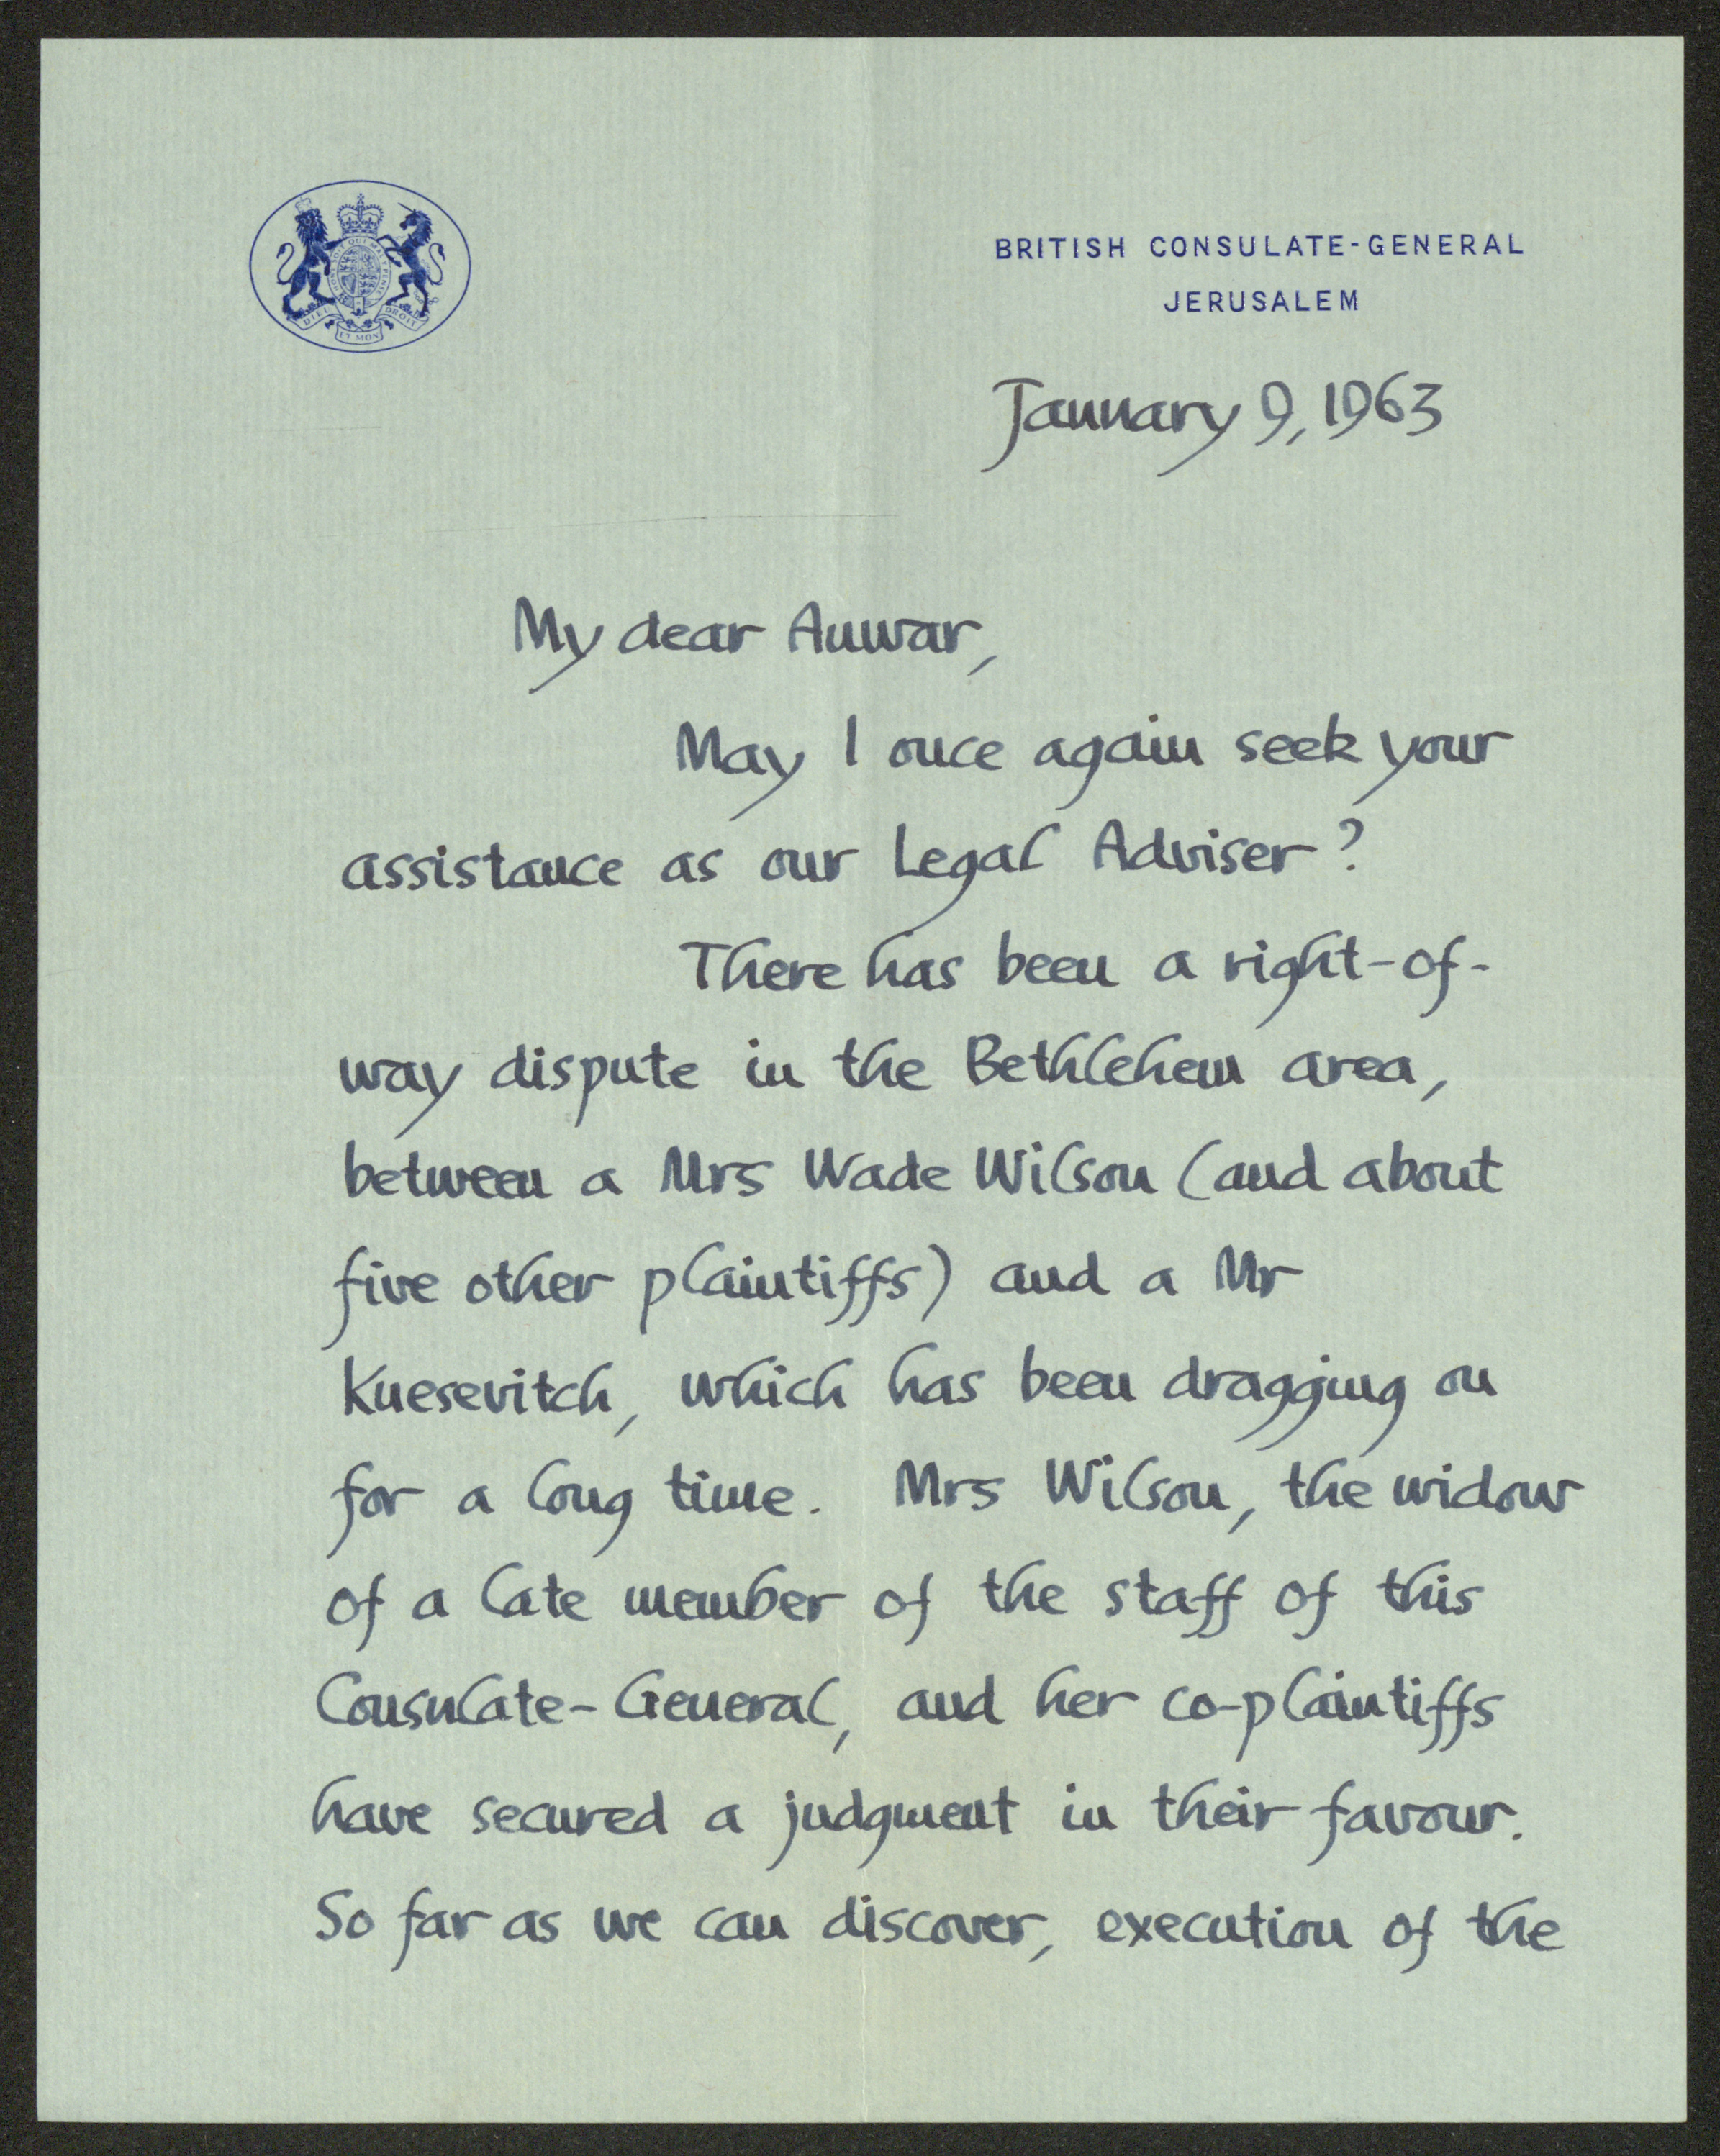 BRITISH CONSULATE-GENERAL
JERUSALEM
January 9, 1963
My dear Anwar,
May I once again seek your
assistance as our Legal Adviser?
There has been a right-of-
way dispute in the Bethlehem area,
between a Mrs Wade Wilson (and about
five other plaintiffs) and a Mr
Knesevitch, which has been dragging on
for a long time. Mrs Wilson, the widow
of a late member of the staff of this
Consulate-General, and her co-plaintiffs
have secured a judgment in their favour.
So far as we can discover, execution of the